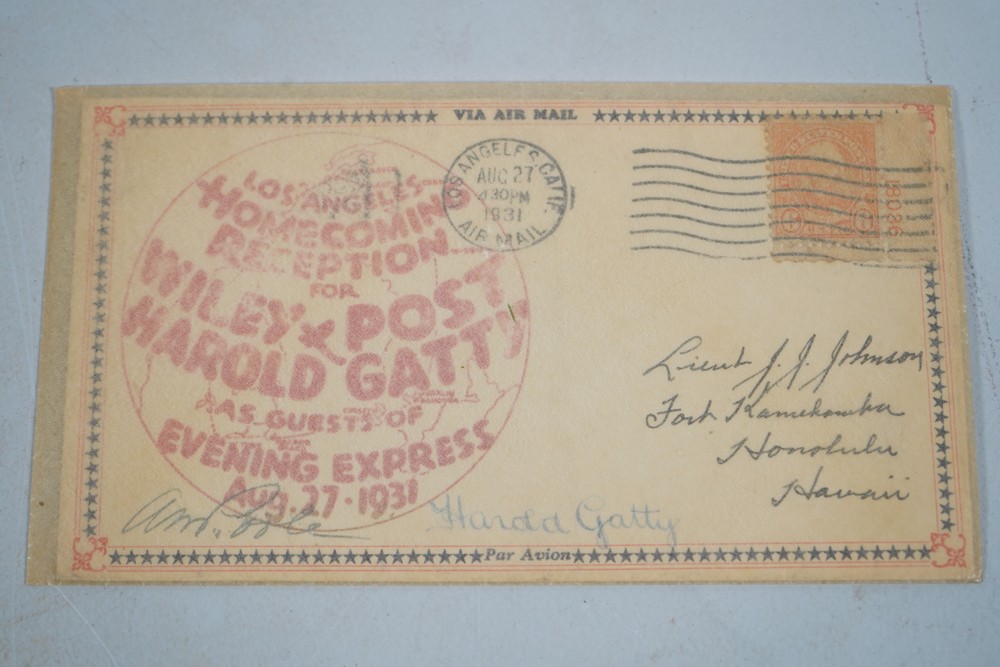 VIA AIR MAIL
LOS ANGELES
HOMECOMING
RECEPTION
FOR
WILEY POST
&
HAROLD GATTY
AS GUESTS OF
EVENING EXPRESS
Aug. 27 · 1931
LOS ANGELES, CALIF.
AUG 27
4 30 PM
1931
AIR MAIL
Lieut J. J. Johnson
Fort Kamehameha
Honolulu
Hawaii
Harold Gatty
Par Avion